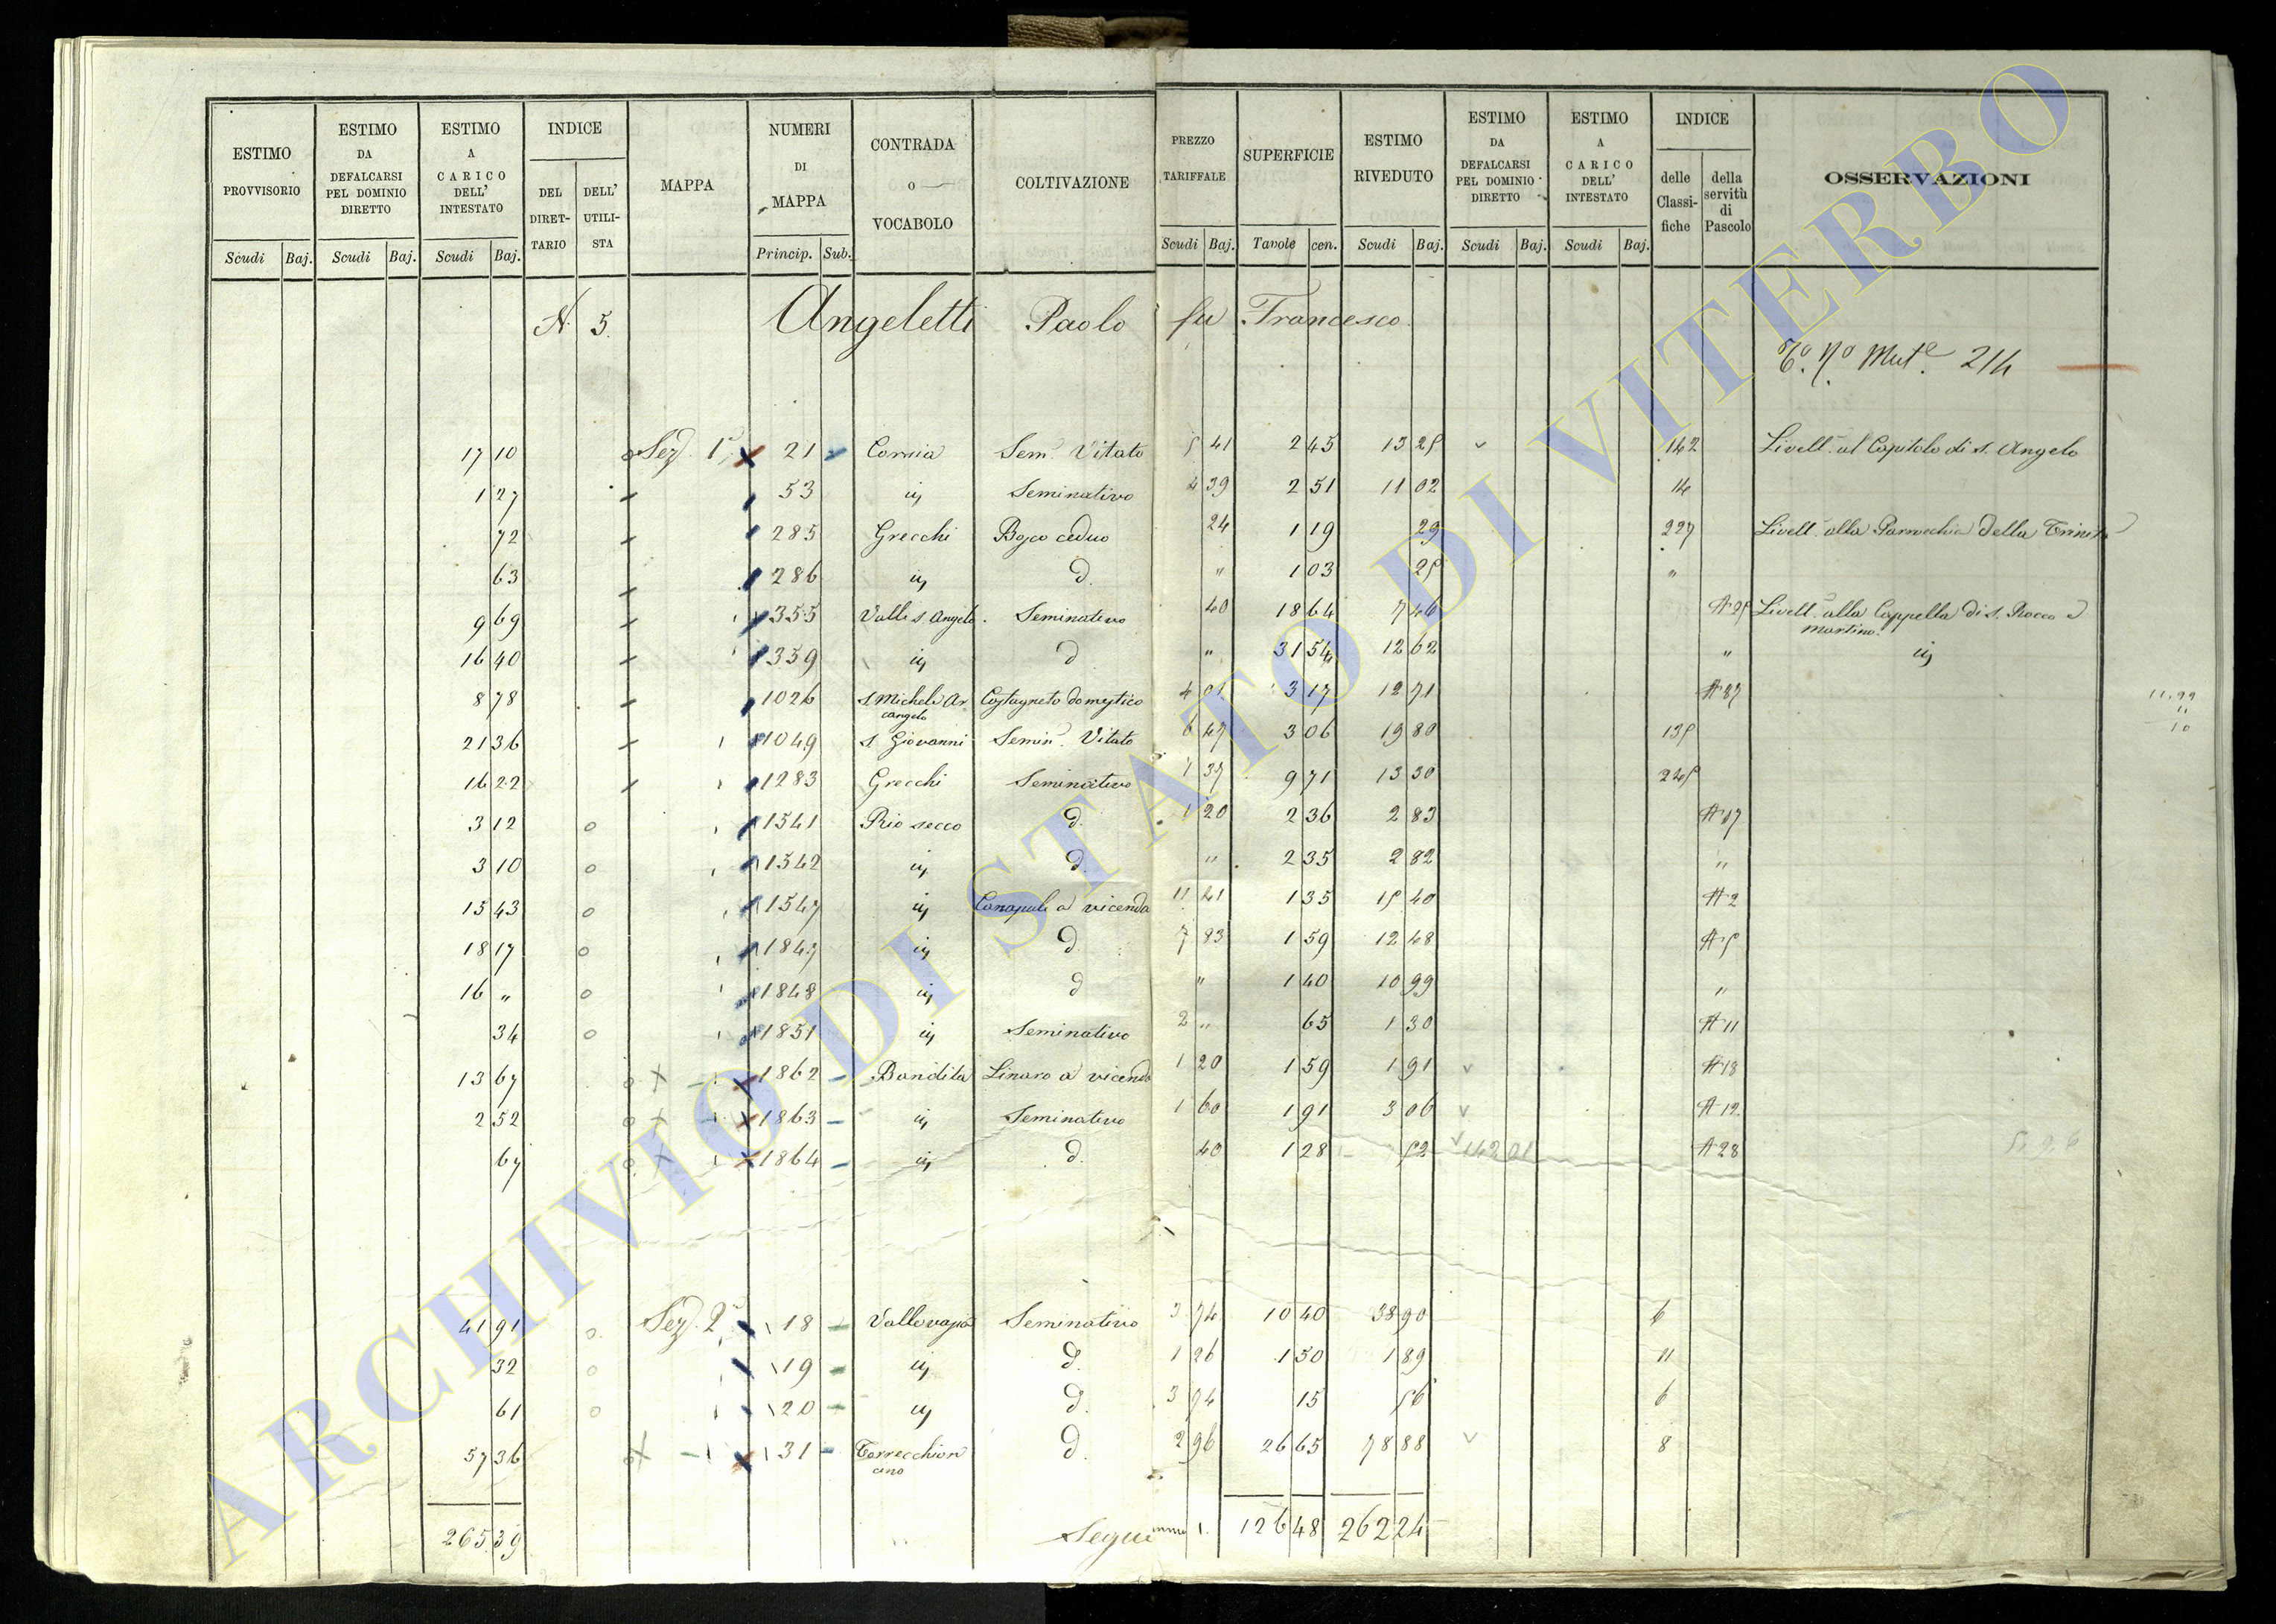 ESTIMO PROVVISORIO | ESTIMO DA DEFALCARSI PEL DOMINIO DIRETTO | ESTIMO A CARICO DELL' INTESTATO | INDICE DEL DIRETTARIO | DELL' UTILISTA | MAPPA | NUMERI DI MAPPA | CONTRADA o VOCABOLO | COLTIVAZIONE | PREZZO TARIFFALE | SUPERFICIE | ESTIMO RIVEDUTO | ESTIMO DA DEFALCARSI PEL DOMINIO DIRETTO | ESTIMO A CARICO DELL' INTESTATO | INDICE delle Classifiche | della servitù di Pascolo | OSSERVAZIONI
Scudi Baj. Scudi Baj. Scudi Baj. Princip. Sub. Scudi Baj. Tavole cen. Scudi Baj. Scudi Baj. Scudi Baj.
N. 5. Angeletti Paolo fu Francesco
Mut.e 214
17 10 Sez. 1a 21 Cornia Sem. Vitato 5 41 2 45 13 25 142 Livell. al Capitolo di s. Angelo
1 27 53 iy Seminativo 4 39 2 51 11 02 14
72 285 Grecchi Bosco ceduo 24 1 19 29 227 Livell. alla Parrocchia della Trinità
63 286 iy d. " 1 03 25 "
9 69 355 Valle s. Angelo Seminativo 40 18 64 7 46 A 25 Livell. alla Cappella di s. Rocco e Martino
16 40 359 iy d " 31 54 12 62 " iy
8 78 1026 s. Michele Arcangelo Castagneto domestico 4 01 3 17 12 71 A 37
21 36 1049 s. Giovanni Semin. Vitato 6 47 3 06 19 80 135
16 22 1283 Grecchi Seminativo 1 37 9 71 13 30 245
3 12 o 1541 Rio secco d. 1 20 2 36 2 83 A 17
3 10 o 1542 iy d. " 2 35 2 82 "
15 43 o 1547 iy Canapule a vicenda 11 41 1 35 15 40 A 2
18 17 o 1847 iy d. 7 83 1 59 12 48 A 5
16 " o 1848 iy d " 1 40 10 99 "
34 o 1851 iy Seminativo 2 " 65 1 30 A 11
13 67 1862 Bandita Linaro a vicenda 1 20 1 59 1 91 A 13
2 52 1863 iy Seminativo 1 60 1 91 3 06 A 12
67 1864 iy d. 40 1 28 52 A 28
41 91 o Sez. 2a 18 Vallevapia Seminativo 3 74 10 40 38 90 6
32 o 19 iy d. 1 26 1 50 1 89 11
61 o 20 iy d. 3 74 15 56 6
57 36 31 Torrecchiorcino d. 2 96 26 65 78 88 8
265 39 Segue 126 48 262 24
ARCHIVIO DI STATO DI VITERBO